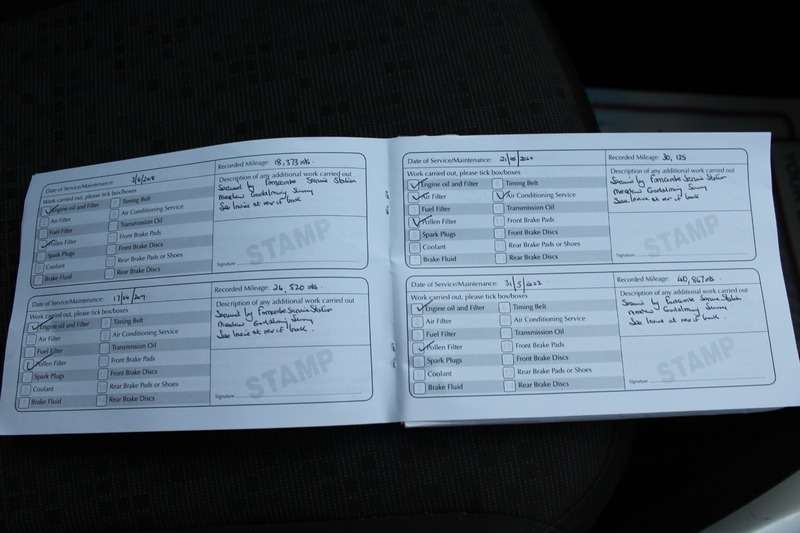 Date of Service/Maintenance: 
Recorded Mileage: 18,373 mls.
Work carried out, please tick box/boxes
Engine oil and Filter
Timing Belt
Air Filter
Air Conditioning Service
Fuel Filter
Transmission Oil
Pollen Filter
Front Brake Pads
Spark Plugs
Front Brake Discs
Coolant
Rear Brake Pads or Shoes
Brake Fluid
Rear Brake Discs
Description of any additional work carried out
Serviced by Farncombe Service Station
Meadrow Godalming Surrey
See Invoice at rear of book
STAMP
Signature
Date of Service/Maintenance: 
Recorded Mileage: 24,520 mls.
Work carried out, please tick box/boxes
Engine oil and Filter
Timing Belt
Air Filter
Air Conditioning Service
Fuel Filter
Transmission Oil
Pollen Filter
Front Brake Pads
Spark Plugs
Front Brake Discs
Coolant
Rear Brake Pads or Shoes
Brake Fluid
Rear Brake Discs
Description of any additional work carried out
Serviced by Farncombe Service Station
Meadrow Godalming Surrey
See Invoice at rear of book.
STAMP
Signature
Date of Service/Maintenance: 
Recorded Mileage: 30,125
Work carried out, please tick box/boxes
Engine oil and Filter
Timing Belt
Air Filter
Air Conditioning Service
Fuel Filter
Transmission Oil
Pollen Filter
Front Brake Pads
Spark Plugs
Front Brake Discs
Coolant
Rear Brake Pads or Shoes
Brake Fluid
Rear Brake Discs
Description of any additional work carried out
Serviced by Farncombe Service Station
Meadrow Godalming Surrey
See Invoice at rear of book
STAMP
Signature
Date of Service/Maintenance: 31/5/2022
Recorded Mileage: 40,867 mls.
Work carried out, please tick box/boxes
Engine oil and Filter
Timing Belt
Air Filter
Air Conditioning Service
Fuel Filter
Transmission Oil
Pollen Filter
Front Brake Pads
Spark Plugs
Front Brake Discs
Coolant
Rear Brake Pads or Shoes
Brake Fluid
Rear Brake Discs
Description of any additional work carried out
Serviced by Farncombe Service Station
Meadrow Godalming Surrey
See Invoice at rear of book.
STAMP
Signature